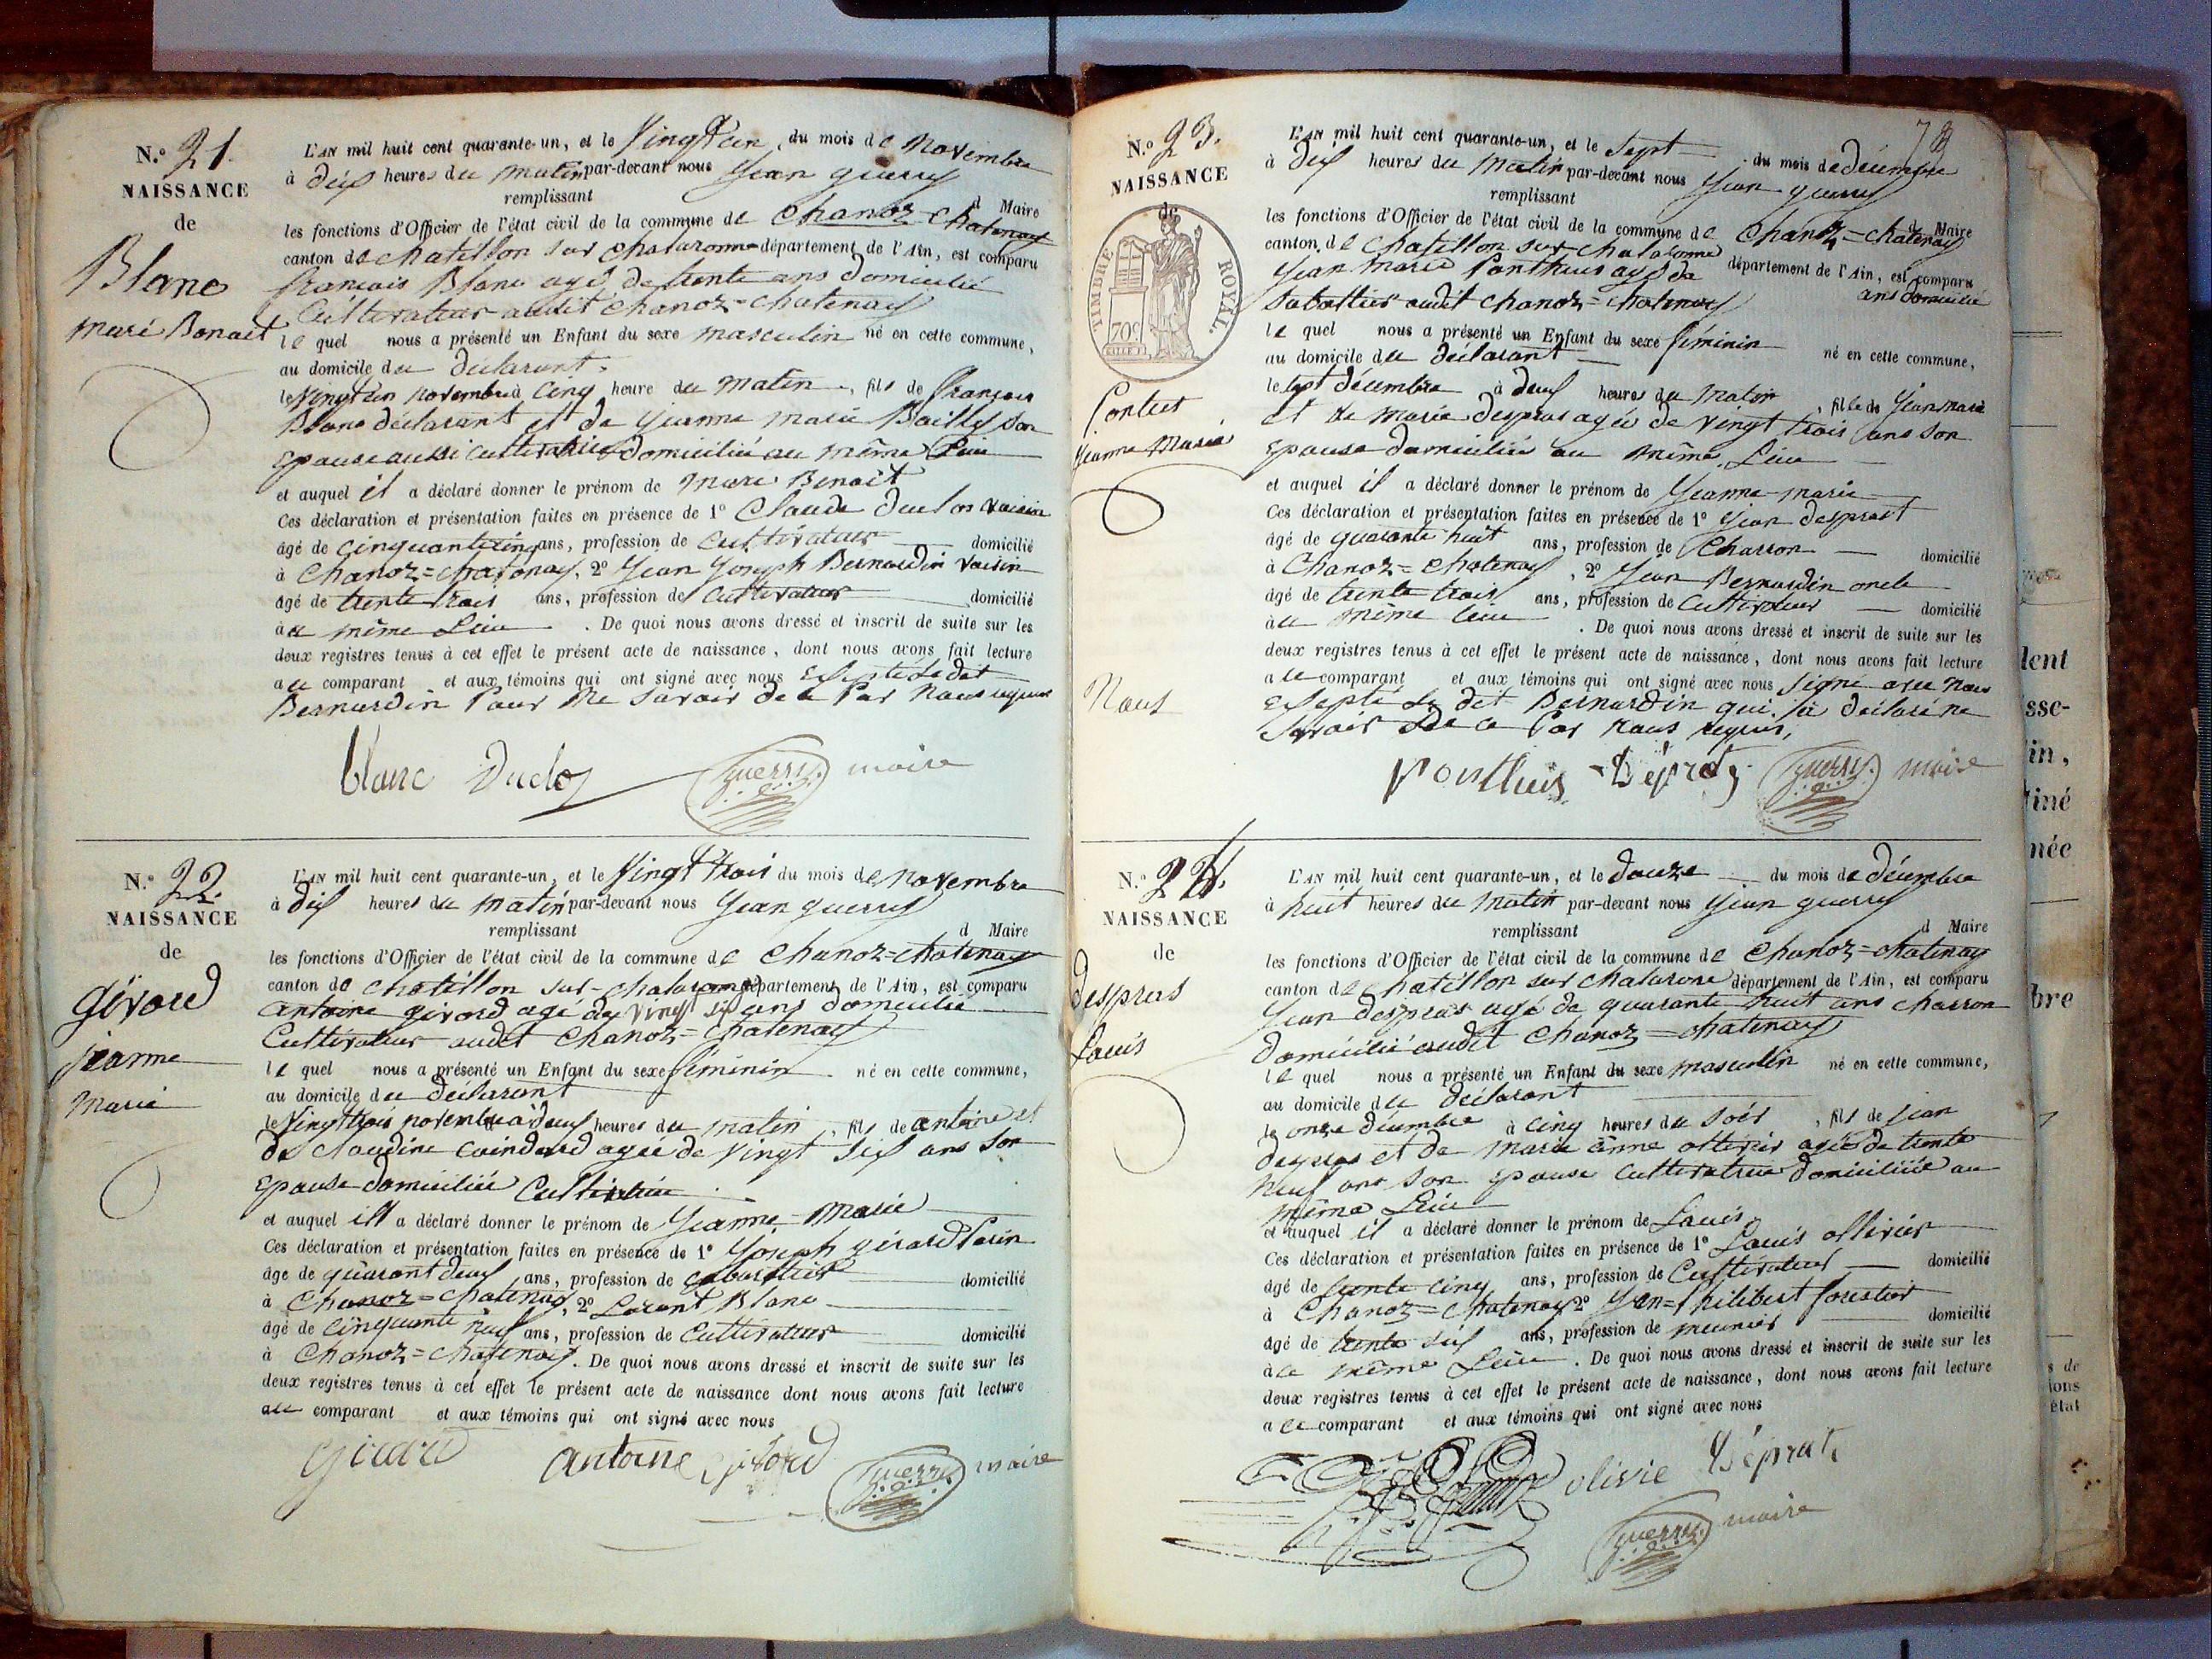 N.o 21.
NAISSANCE
de
Blanc
Marc Benoit
L'AN mil huit cent quarante-un, et le Vingt un du mois de Novembre
à dix heures du matin par-devant nous Jean guerry
remplissant d Maire
les fonctions d'Officier de l'état civil de la commune de Chanoz-Chatenay
canton de chatillon sur chalaronne département de l'Ain, est comparu
francois Blanc agé de trente ans domicilié
Cultivateur audit Chanoz=Chatenay
le quel nous a présenté un Enfant du sexe masculin né en cette commune,
au domicile du déclarant.
le Vingt un novembre à Cinq heure du matin, fils de francois
Blanc déclarant et de Jeanne marie Bailly Son
Epouse aussi cultivatrice domiciliée au même Lieu
et auquel il a déclaré donner le prénom de Marc Benoit
Ces déclaration et présentation faites en présence de 1o Claude Duclos voisin
âgé de cinquante cinq ans, profession de Cultivateur domicilié
à Chanoz=chatenay, 2o Jean Joseph Bernardin Voisin
âgé de trente trois ans, profession de Cultivateur domicilié
à u même Lieu. De quoi nous avons dressé et inscrit de suite sur les
deux registres tenus à cet effet le présent acte de naissance, dont nous avons fait lecture
au comparant et aux témoins qui ont signé avec nous Exsepté le dit
Bernardin Pour Ne Savoir de ce Par Nous requis
blanc Duclos guerry maire
N.o 22.
NAISSANCE
de
givord
jeanne
Marie
L'AN mil huit cent quarante-un, et le Vingt trois du mois de Novembre
à dix heures du matin par-devant nous Jean guerry
remplissant d Maire
les fonctions d'Officier de l'état civil de la commune de Chanoz=chatenay
canton de chatillon sur-chalaronne département de l'Ain, est comparu
antoine givord agé de vingt six ans domicilié
Cultivateur audit Chanoz=Chatenay
le quel nous a présenté un Enfant du sexe féminin né en cette commune,
au domicile du déclarant
le Vingt trois novembre à deux heures du matin, fils de antoine et
de claudine agée de Vingt Six ans Son
Epouse domiciliée Cultivatrice
et auquel ill a déclaré donner le prénom de Jeanne-Marie
Ces déclaration et présentation faites en présence de 1o Joseph girard
âgé de quarant deux ans, profession de domicilié
à Chanoz=chatenay, 2o Lorent Blanc
âgé de Cinquante ans, profession de Cultivateur domicilié
à Chanoz=chatenay. De quoi nous avons dressé et inscrit de suite sur les
deux registres tenus à cet effet le présent acte de naissance dont nous avons fait lecture
au comparant et aux témoins qui ont signé avec nous
girard antoine givord guerry maire
N.o 23.
NAISSANCE
de
TIMBRE ROYAL.
70c.
Jeanne Marie
Nous
L'AN mil huit cent quarante-un, et le Sept du mois de décembre
à dix heures du matin par-devant nous Jean guerry
remplissant d Maire
les fonctions d'Officier de l'état civil de la commune de Chanoz=chatenay
canton de Chatillon sur chalaronne département de l'Ain, est comparu
Jean Marie Ponthus agé de ans domicilié
Sabottier audit Chanoz=chatenay
le quel nous a présenté un Enfant du sexe féminin né en cette commune,
au domicile du déclarant
le sept décembre à deux heures du matin, fille de Jean marie
et de Marie despras agée de vingt trois ans son
Epouse domiciliée au même Lieu
et auquel il a déclaré donner le prénom de Jeanne-marie
Ces déclaration et présentation faites en présence de 1o Jean desprast
âgé de quarante huit ans, profession de Charron domicilié
à Chanoz=chatenay, 2o Jean Bernardin oncle
âgé de trente trois ans, profession de Cultivateur domicilié
à u même lieu. De quoi nous avons dressé et inscrit de suite sur les
deux registres tenus à cet effet le présent acte de naissance, dont nous avons fait lecture
a u comparant et aux témoins qui ont signé avec nous signé avec nous
Exsepté le dit Bernardin qui la déclaré ne
Savoir de ce Par Nous requis,
Ponthus Déprat guerry maire
N.o 24.
NAISSANCE
de
Despras
Louis
L'AN mil huit cent quarante-un, et le douze du mois de décembre
à huit heures du matin par-devant nous Jean guerry
remplissant d Maire
les fonctions d'Officier de l'état civil de la commune de Chanoz=chatenay
canton de chatillon sur chalarone département de l'Ain, est comparu
Jean despras agé de quarante huit ans charron
domicilié audit Chanoz=chatenay
le quel nous a présenté un Enfant du sexe masculin né en cette commune,
au domicile du déclarant
le onze décembre à cinq heures du soir, fils de jean
despras et de Marie anne agée de trente
neuf ans son epouse cultivatrice domiciliée au
même Lieu
et auquel il a déclaré donner le prénom de Louis
Ces déclaration et présentation faites en présence de 1o Louis ollivier
âgé de trente cinq ans, profession de Cultivateur domicilié
à Chanoz=Chatenay 2o Jean=Philibert forestier
âgé de trente six ans, profession de meunier domicilié
à u même Lieu. De quoi nous avons dressé et inscrit de suite sur les
deux registres tenus à cet effet le présent acte de naissance, dont nous avons fait lecture
a u comparant et aux témoins qui ont signé avec nous
olivie Déprat
guerry maire